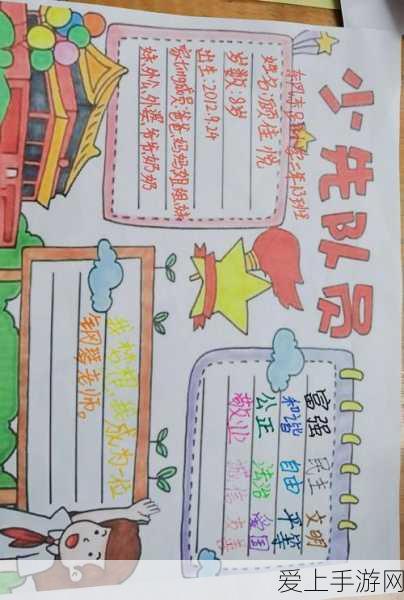 小先队员
二年13班
姓名:顾佳悦
岁数:8岁
出生:2012.9.24
成员:爸爸,妈妈,姐姐,妹
妹,外公,外婆,爷爷,奶奶
富强 民主 文明
和谐 自由 平等
公正 法治 爱国
敬业 诚信 友善
我成为一位
钢琴老师。
爱上手游网